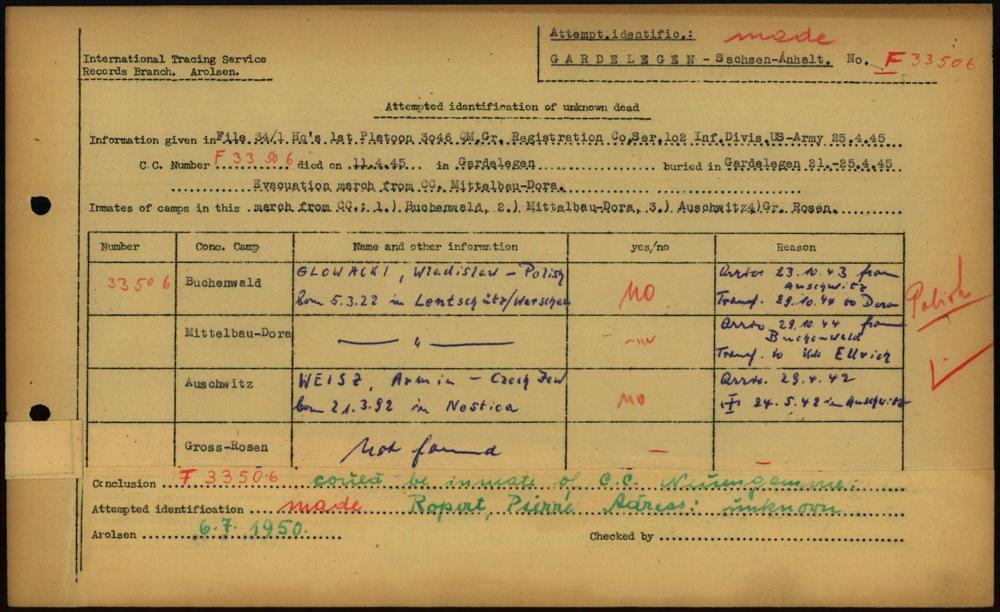 Attempt.identific.: made
International Tracing Service
Records Branch. Arolsen.
GARDELEGEN - Sachsen-Anhalt. No. F 33506
Attempted identification of unknown dead
Information given in File 34/1 Hq's 1st Platoon 3046 QM.Gr. Registration Co.Ser.1o2 Inf.Divis.US-Army 25.4.45
C.C. Number F 33 506 died on 11.4.45 in Gardelegen buried in Gardelegen 21.-25.4.45
Evacuation march from CC. Mittelbau-Dora.
Inmates of camps in this march from CC.: 1.) Buchenwald, 2.) Mittelbau-Dora, 3.) Auschwitz4)Gr. Rosen.
Number Conc. Camp Name and other information yes/no Reason
33506 Buchenwald GLOWACKI, Wladislaw - Polish born 5.3.22 in Lentschütz/Warschau NO Arriv 23.10.43 from Auschwitz Transf. 29.10.44 to Dora
Polish
Mittelbau-Dora " Arriv. 29.10.44 from Buchenwald Transf. to Ellrich
Auschwitz WEISZ, Armin - Czech Jew born 21.3.92 in Nestica NO Arriv. 29.4.42 24.5.42 in Auschwitz
Gross-Rosen Not found -
Conclusion F 33506 could be inmate of C.C. Neuengamme;
Attempted identification made Ropert, Pierre Adress: unknown
Arolsen 6.7.1950. Checked by